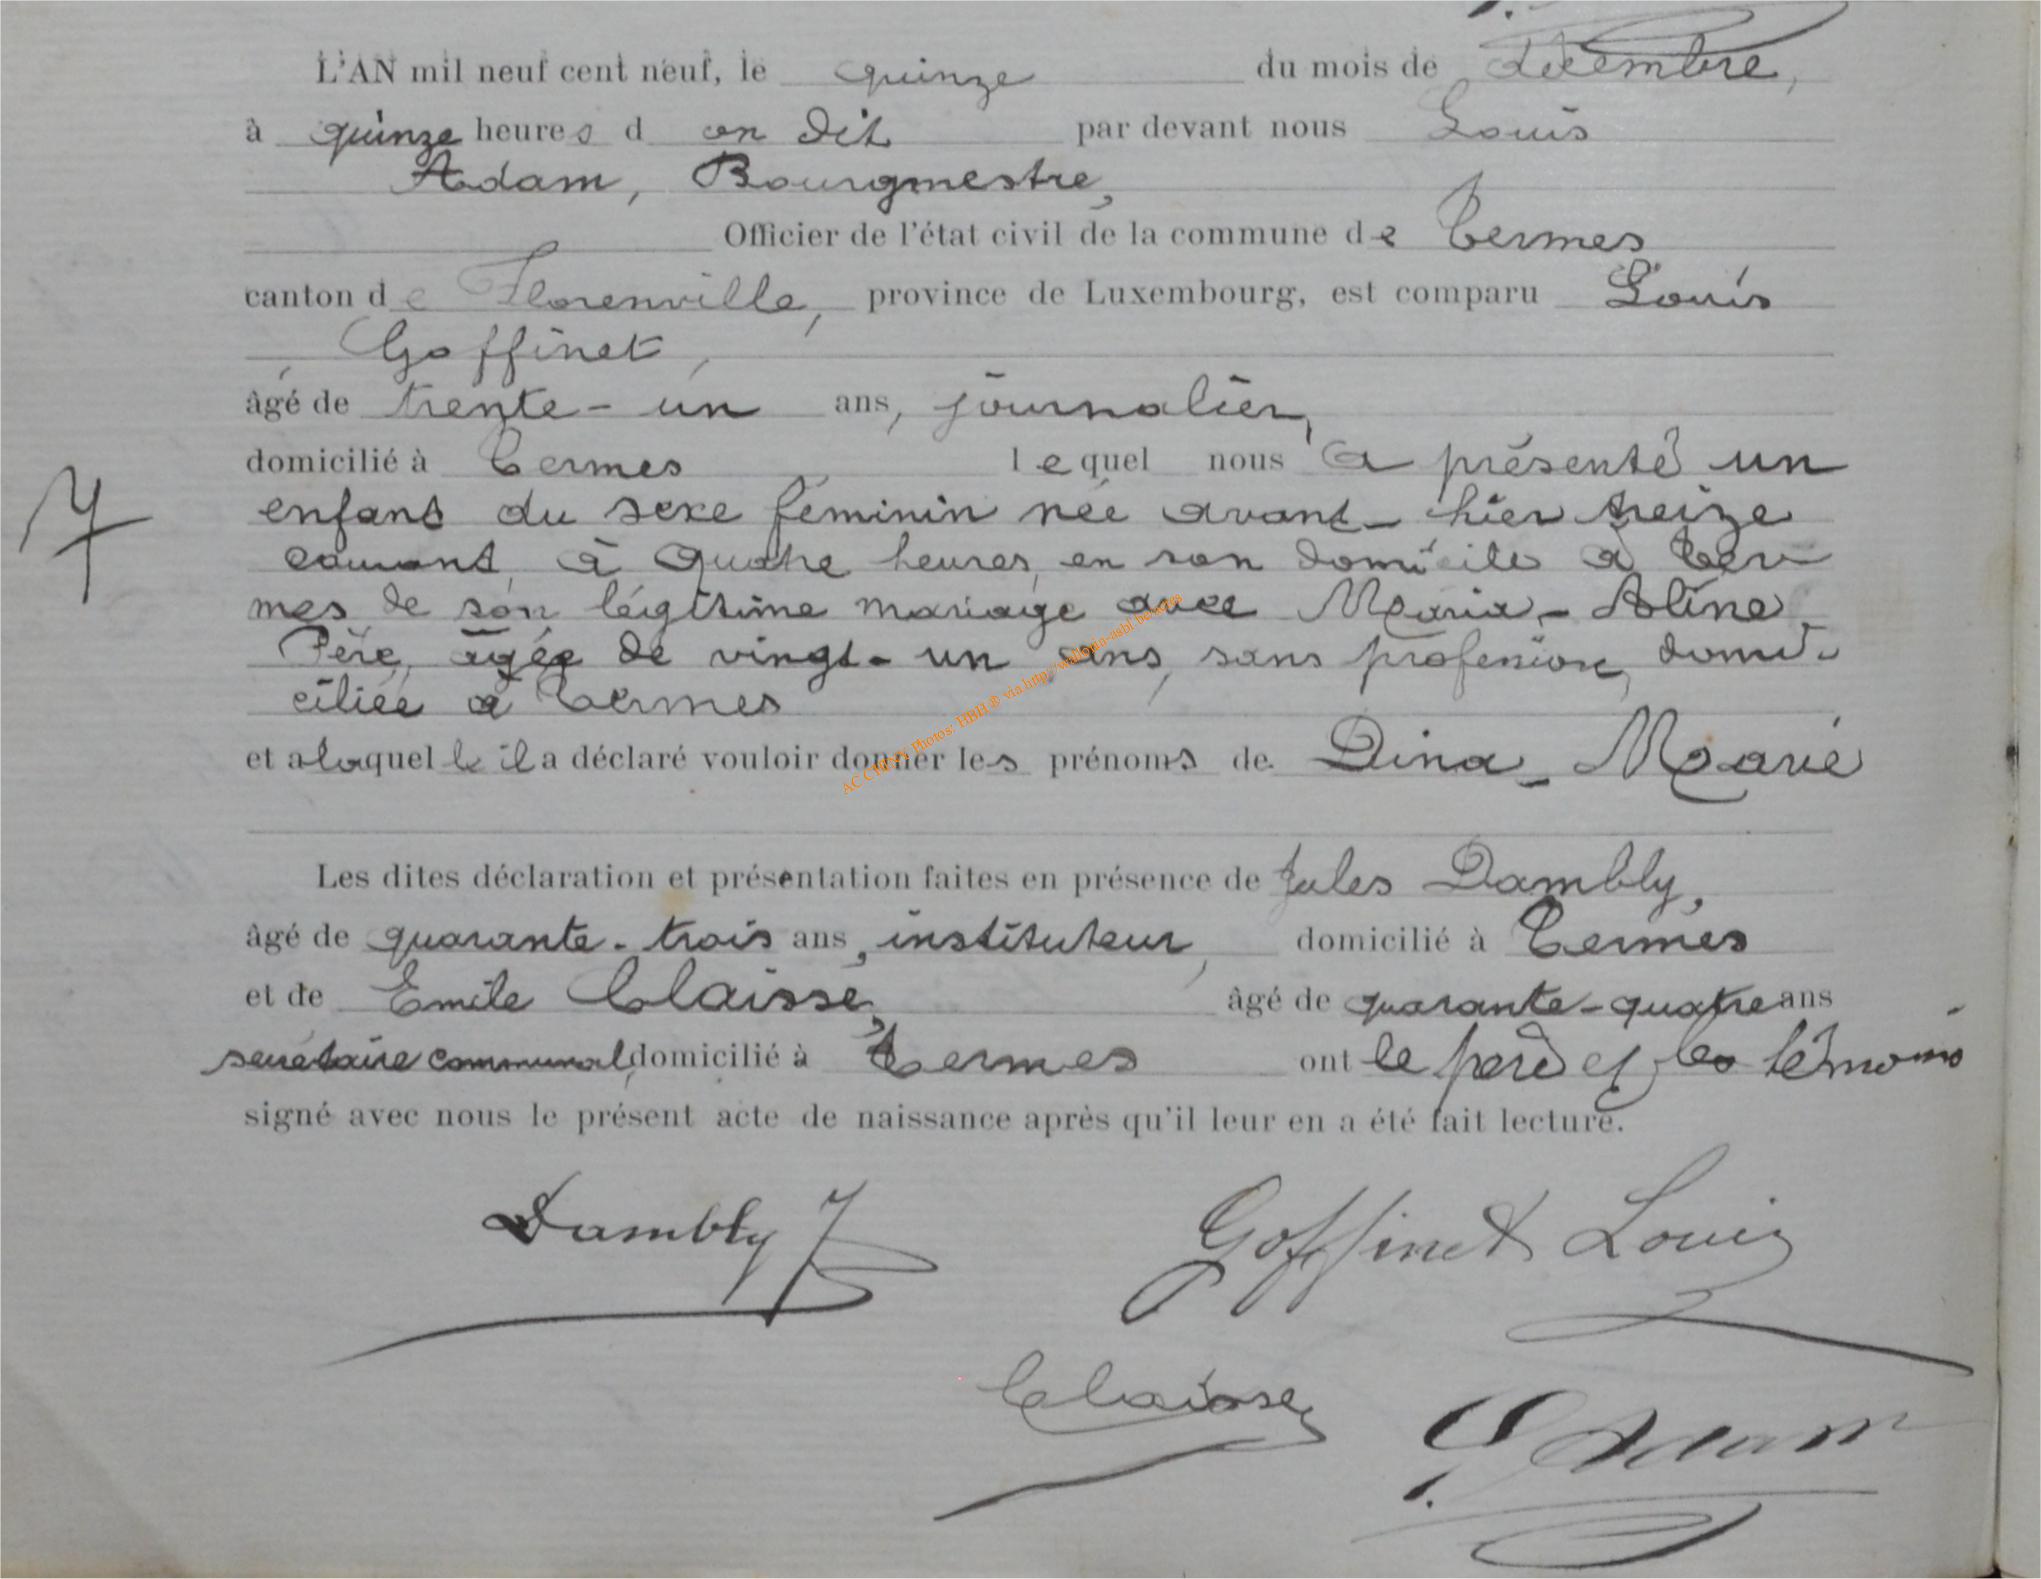 L'AN mil neuf cent neuf, le quinze du mois de décembre,
à quinze heures d on dit par devant nous Louis
Adam, Bourgmestre,
Officier de l'état civil de la commune de Termes
canton de Florenville, province de Luxembourg, est comparu Louis
Goffinet,
âgé de trente-un ans, journalier,
domicilié à Termes lequel nous a présenté un
enfant du sexe féminin née avant-hier treize
courant, à quatre heures, en son domicile à Ter-
mes de son légitime mariage avec Maria-Aline
Père, âgée de vingt-un ans, sans profession, domi-
ciliée à Termes
et a laquelle il a déclaré vouloir donner les prénoms de Dina-Marie
Les dites déclaration et présentation faites en présence de Jules Dambly,
âgé de quarante-trois ans, instituteur, domicilié à Termes
et de Emile Claisse, âgé de quarante-quatre ans
secrétaire communal, domicilié à Termes ont le père et les témoins
signé avec nous le présent acte de naissance après qu'il leur en a été fait lecture.
Dambly J
Goffinet Louis
Claisse
L. Adam
7
AC CHINY Photos: HBH® via http://wallonia-asbl.be/actes